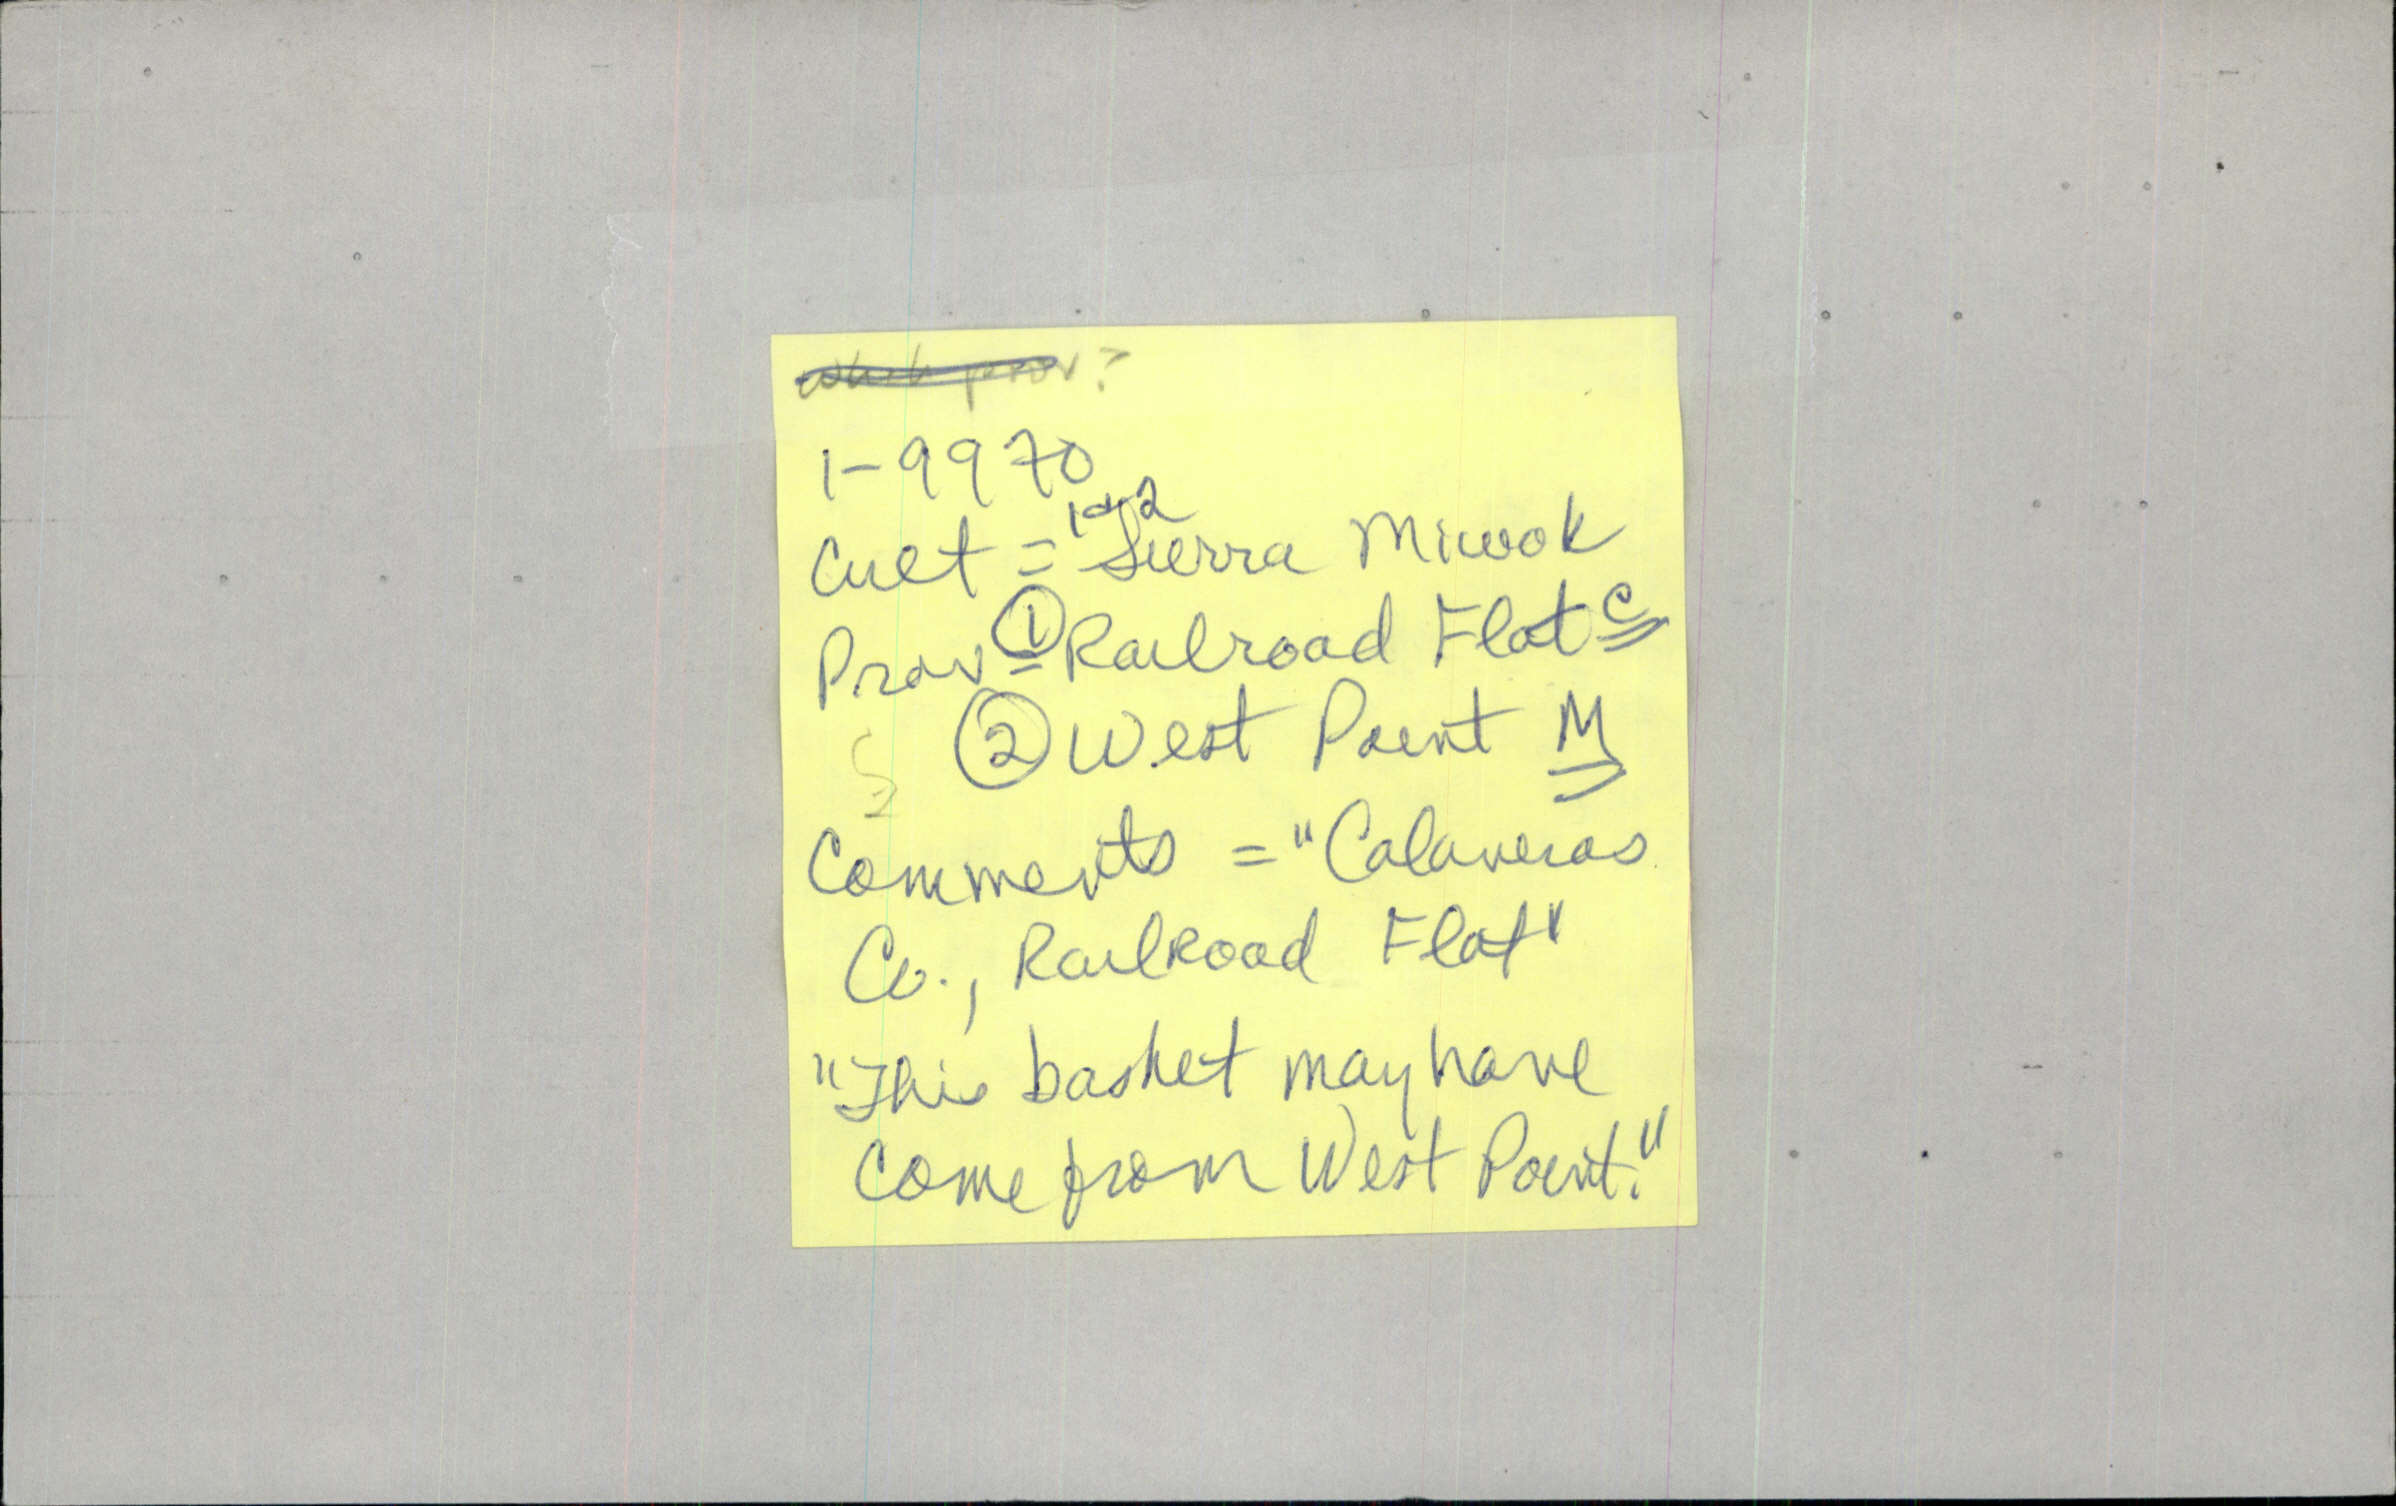 which prov?
1-9970
1+2
Cult = Sierra Miwok
Prov = ① Railroad Flat C
② West Point M
Comments = "Calaveras
Co., RailRoad Flat"
"This basket may have
come from West Point."